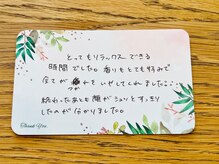 とってもリラックスできる
時間でした。香りもとても好みで
全てが つかれをいやしてくれました。
終わったあとも顔がシュッとすっきり
したのが分かりました。
Thank You